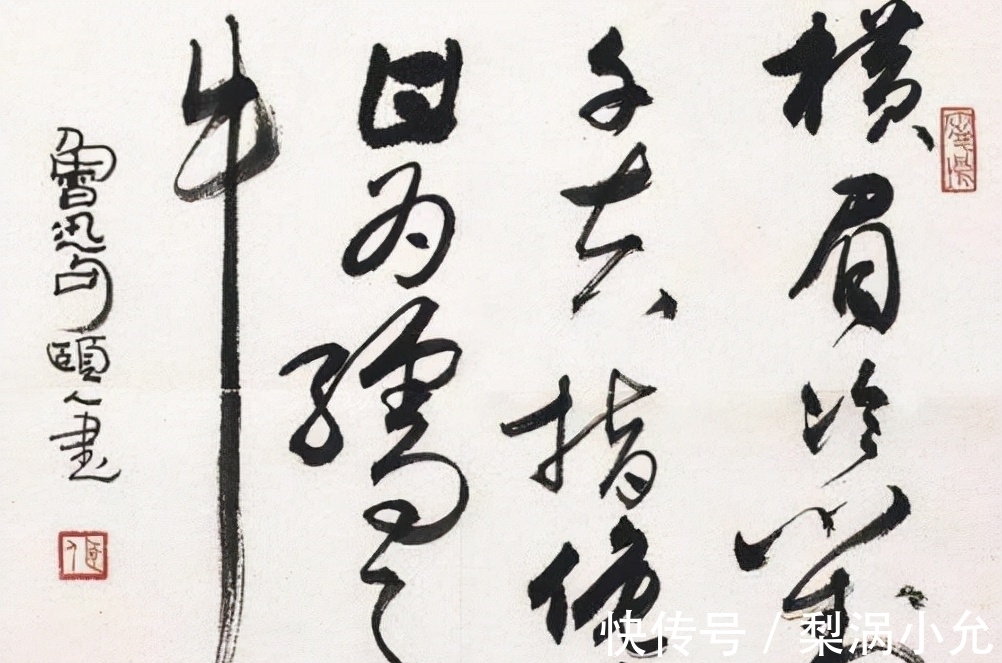 横眉冷对
千夫指俯
甘为孺子
牛
魯迅句頤人書
快传号 / 梨涡小允